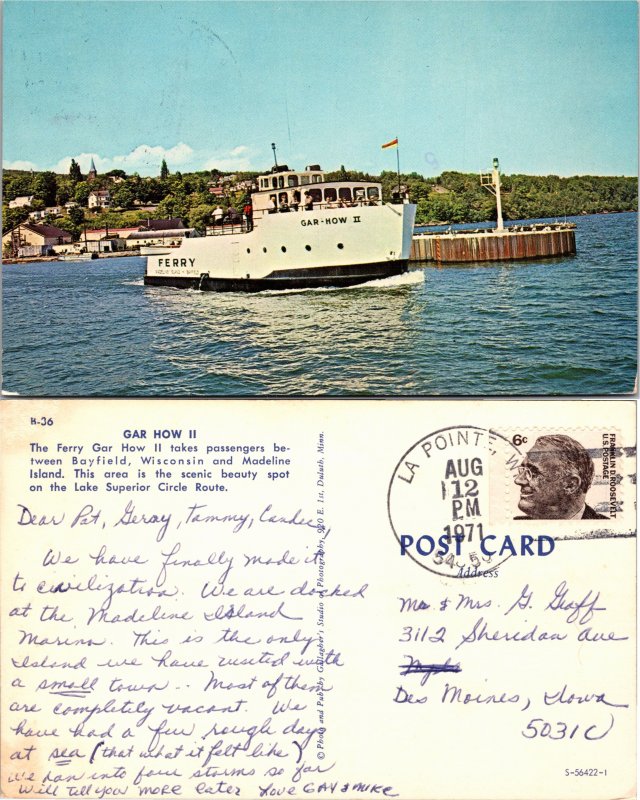 GAR-HOW II
FERRY
H-36
GAR HOW II
The Ferry Gar How II takes passengers be-
tween Bayfield, Wisconsin and Madeline
Island. This area is the scenic beauty spot
on the Lake Superior Circle Route.
Dear Pat, Geray, Tammy, Candee
We have finally made it
to civilization. We are docked
at the Madeline Island
Marina. This is the only
Island we have visited with
a small town.. Most of them
are completely vacant. We
have had a few rough days
at sea (that what it felt like)
we ran into four storms so far
Will tell you more later Love GAY & MIKE
© Photo and Pub. by Gallagher's Studio of Photography, 920 E. 1st, Duluth, Minn.
LA POINTE, W
AUG
12
PM
1971
6c
FRANKLIN D. ROOSEVELT
U.S. POSTAGE
POST CARD
Address
Mr & Mrs. G. Goff
3112 Sheridan Ave
Des Moines, Iowa
50310
S-56422-1